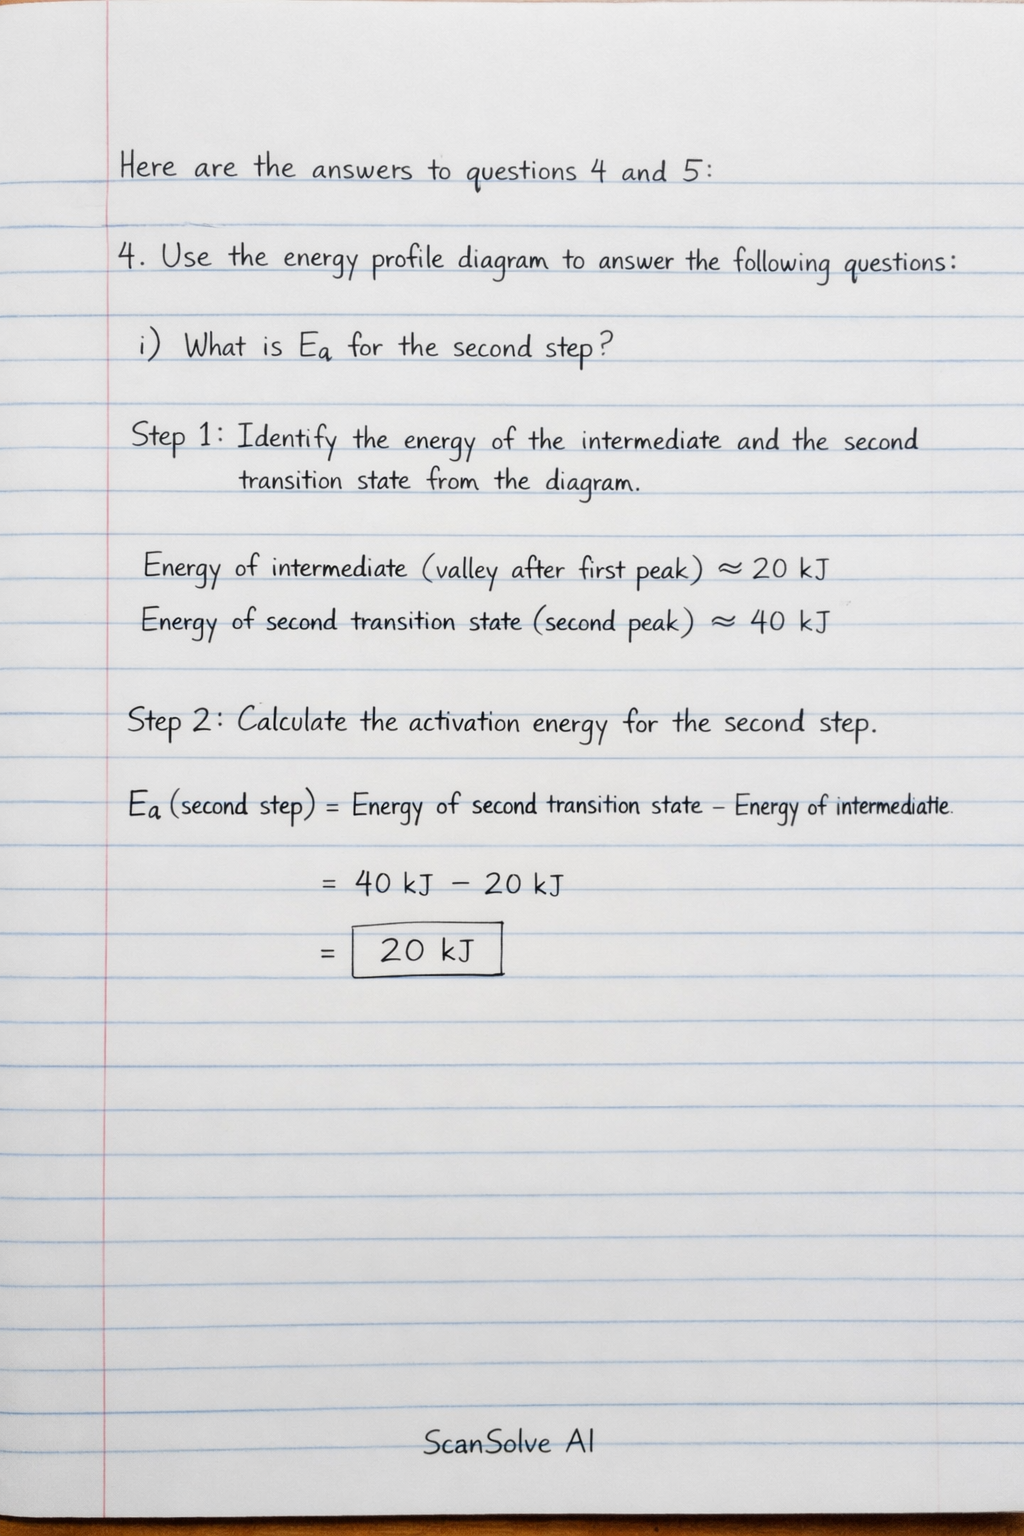 Here are the answers to questions 4 and 5:
4. Use the energy profile diagram to answer the following questions:
i) What is Ea for the second step?
Step 1: Identify the energy of the intermediate and the second
transition state from the diagram.
Energy of intermediate (valley after first peak) ≈ 20 kJ
Energy of second transition state (second peak) ≈ 40 kJ
Step 2: Calculate the activation energy for the second step.
Ea (second step) = Energy of second transition state – Energy of intermediatie.
= 40 kJ – 20 kJ
= 20 kJ
ScanSolve AI